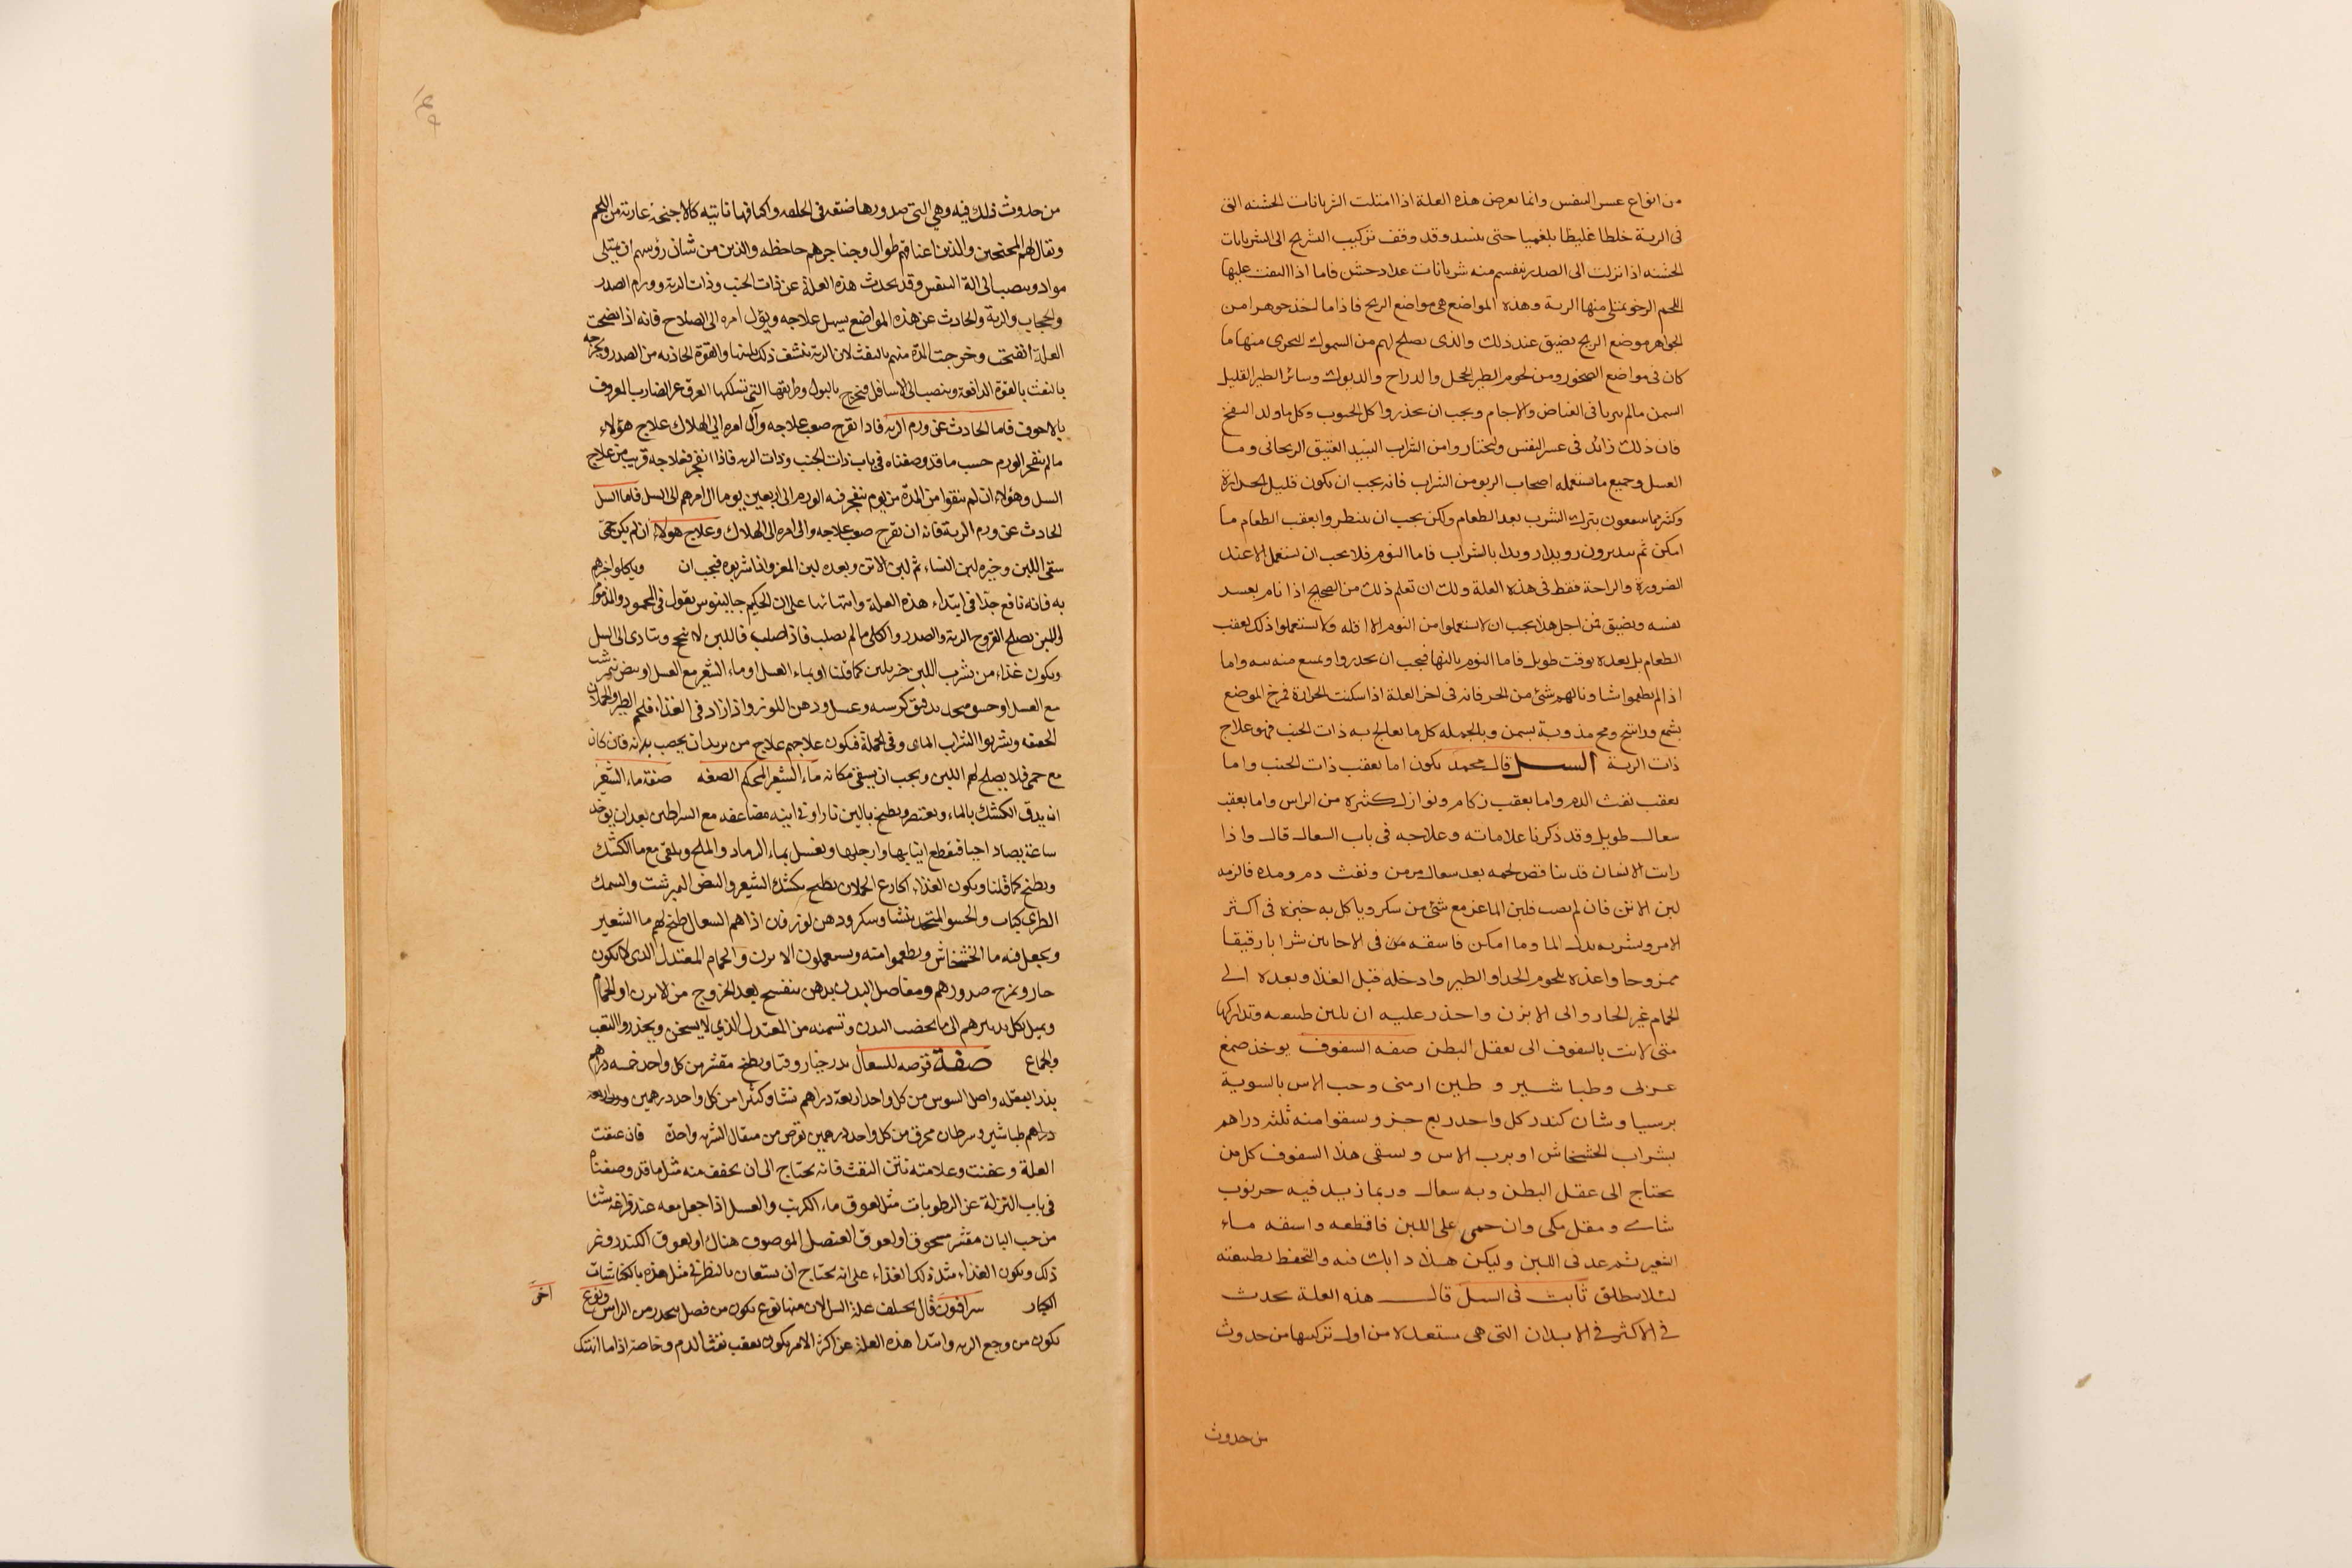 من انواع عسر النفس وانما يعرض هذه العلة اذا امتلت الشريانات الخشنه التى
فى الرية خلطا غليظا بلغميا حتى ينسد وقد وقف تركيب التشريح الى الشريانات
الخشنه اذا نزلت الى الصدر ينقسم منه شريانات عداد خشن فاما اذا التفت عليها
اللحم الرخو يمتلى منها الرية وهذه المواضع هى مواضع الريح فاذا ما لخذ جوهرا من
الجواهر موضع الريح يضيق عند ذلك والذى يصلح لهم من السموك البحرى منها ما
كان فى مواضع الصخور ومن لحوم الطير الحجل والدراج والديوك وسائر الطير القليل
السمن مالم يربا فى الغياض والاجام ويجب ان يحذروا كل الحبوب وكل ما ولد النفخ
فان ذلك زائد فى عسر النفس وليختاروا من الشراب النبيذ العتيق الريحانى وما
العسل وجميع ما يستعمله اصحاب الربو من الشراب فانه يجب ان يكون قليل الحرارة
وكثيرا ما ينتفعون بترك الشرب بعد الطعام ولكن يجب ان ينتظروا بعقب الطعام ما
امكن ثم يبدرون رويدا رويدا بالشراب فاما النوم فلا يجب ان يستعمل الا عند
الضرورة والراحة فقط فى هذه العلة ولك ان تعلم ذلك من الصحيح اذا نام يعسر
نفسه ويضيق فمن اجل هذا يجب ان لا يستعملوا من النوم الا اقله ولا يستعملوا ذلك بعقب
الطعام بل بعده بوقت طويل فاما النوم بالنهار فيجب ان يحذروا ويمنع منه بته واما
اذا لم يطعموا شيا ونالهم شئ من الحر فانه فى اخر العلة اذا سكنت الحرارة فمرخ الموضع
بشمع وراتنج ومخ مذوبة بسمن وبالجمله كل ما يعالج به ذات الجنب فهو علاج
ذات الرية السل قال محمد يكون اما بعقب ذات الجنب واما
بعقب نفث الدم واما بعقب زكام ونوازل كثيره من الراس واما بعقب
سعال طويل وقد ذكرنا علاماته وعلاجه فى باب السعال قال واذا
رايت الانسان قد يتناقص لحمه بعد سعال مزمن ونفث دم ومده فالزمه
لبن الاتن فان لم يصب فلبن الماعز مع شئ من سكر وياكل به خبزه فى اكثر
الامر ويشربه بدل الما وما امكن فاسقه من فى الاحايين شرابا رقيقا
ممزوجا واغذه بلحوم الجدا والطير وادخله قبل الغذا وبعده الى
الحمام غير الحار والى الابزن واحذر عليه ان يلين طبيعته وتداركها
متى لانت بالسفوف الى يعقل البطن صفه السفوف يوخذ صمغ
عربى وطباشير و طين ارمنى وحب الاس بالسوية
برسياوشان كندر كل واحد ربع جز ويسقوا منه ثلثه دراهم
بشراب الخشخاش او برب الاس ويسقى هذا السفوف كل من
يحتاج الى عقل البطن وبه سعال وربما زيد فيه خرنوب
شامى ومقل مكى وان حمى على اللبن فاقطعه واسقه ماء
الشعير ثم عد فى اللبن وليكن هذا دابك فيه والتحفظ بطبيعته
لئلا ينطلق ثابت فى السل قال هذه العلة يحدث
فى الاكثر فى الابدان التى هى مستعدة من اول تركيبها من حدوث
من حدوث
من حدوث ذلك فيه وهى التى صدورها ضيقه فى الخلقه واكتافها ناتيه كالاجنحة عارية من اللحم
ويقال لهم المجنحين والذين اعناقهم طوال وحناجرهم جاحظه والذين من شان رؤسهم ان يمتلى
مواد وينصب الى الة النفس وقد يحدث هذه العلة عن ذات الجنب وذات الرية وورم الصدر
والحجاب والرية والحادث عن هذه المواضع يسهل علاجه ويؤل امره الى الصلاح فانه اذا نضجت
العلة انفتحت وخرجت المدة منهم بالنفث لان الرية تنشف ذلك بلينها والقوة الجاذبه من الصدر ويخرجه
بالنفث بالقوة الدافعة وينصب الى الاسافل فيخرج بالبول وطريقها التى تسلكها العرق غير الضارب المعروف
بالاجوف فاما الحادث عن ورم الريه فاذا تقرح صعب علاجه وآل امره الى الهلاك علاج هؤلاء
ما لم ينفجر الورم حسب ما قد وصفناه فى باب ذات الجنب وذات الريه فاذا انفجر فعلاجه قريب من علاج
السل وهؤلاء ان لم ينقوا من المدة من يوم ينفجر فيه الورم الى اربعين يوما ال امرهم الى السل فاما السل
الحادث عن ورم الرية فانه ان تقرح صعب علاجه والى امره الى الهلاك وعلاج هؤلاء ان لم يكن حمى
سقى اللبن وخيره لبن النساء ثم لبن الاتن وبعده لبن المعز واذا شربوه فيجب ان وياكلوا خبزهم
به فانه نافع جدا فى ابتداء هذه العلة وانتهائها على ان الحكيم جالينوس يقول فى المحمود والمذموم
اللبن يصلح القروح الرية والصدر والكلى ما لم يصلب فاذا صلب فاللبن لا ينجح ويتادى الى السل
ويكون غذاء من يشرب اللبن خبز بلبن كما قلنا او بماء العسل او ماء الشعير مع العسل او بيض نيمرشت
مع العسل او حسو متخذ بدقيق كرسنه وعسل ودهن اللوز واذا زاد فى الغذاء فلحم الطير والحملان
الخفيفه ويشربوا الشراب المائى وفى الجملة فيكون علاجهم علاج من يريد ان يخصب بدنه فان كان
مع حمى فلا يصلح لهم اللبن ويجب ان يسقى مكانه ماء الشعير المحكم الصنعه صفة ماء الشعير
ان يدق الكشك بالماء ويعتصر ويطبخ بالين نارا وفى انيه مضاعفه مع السراطين بعد ان يوخذ
ساعة يصاد احيا فيقطع انيابها وارجلها ويغسل بماء الرماد والملح ويلقى مع ما الكشك
ويطبخ كما قلنا ويكون الغذاء اكارع الحملان يطبخ بكشك الشعير والبيض النيمرشت والسمك
الطرى كباب والحسو المتخذ بنشا وسكر ودهن لوز فان اذاهم السعال طبخ لهم ما الشعير
ويجعل فيه ما الخشخاش ويطعموا منه ويستعملون الابزن والحمام المعتدل الذى لا يكون
حار ويمرخ صدورهم ومفاصل البدن بدهن بنفسج بعد الخروج من الابزن او الحمام
ويميل بكل تدبيرهم الى ما يخصب البدن وتسمنه من المعتدل الذى لا يسخن ويحذروا التعب
والجماع صفة قرصه للسعال بزر خيار وقثا وبطيخ مقشر من كل واحد خمسه دراهم
بذر البقله واصل السوس من كل واحد اربعة دراهم نشا وكثيرا من كل واحد درهمين
دراهم طباشير وسرطان محرق من كل واحد درهمين يقرص من مثقال الشربه واحدة فان عتقت
العلة وعفنت وعلامته نتن النفث فانه يحتاج الى ان يجفف منه مثل ما قد وصفناه
فى باب النزلة عن الرطوبات مثل لعوق ماء الكرنب والعسل اذا جعل معه عند فراغه شئا
من حب البان مقشر مسحوق او لعوق العنصل الموصوف هناك او لعوق الكندر وغير
ذلك ويكون الغذاء مثل ذلك الغذاء على انه يحتاج ان يستعان بالنظر فى مثل هذه بالكناشات
الكبار سرافيون قال يختلف علة السل لان منها نوع يكون من فصل ينحدر من الراس ونوع اخر
يكون من وجع الريه وابتدا هذه العلة عن اكثر الامر يكون بعقب نفث الدم وخاصة اذا ما انتبك